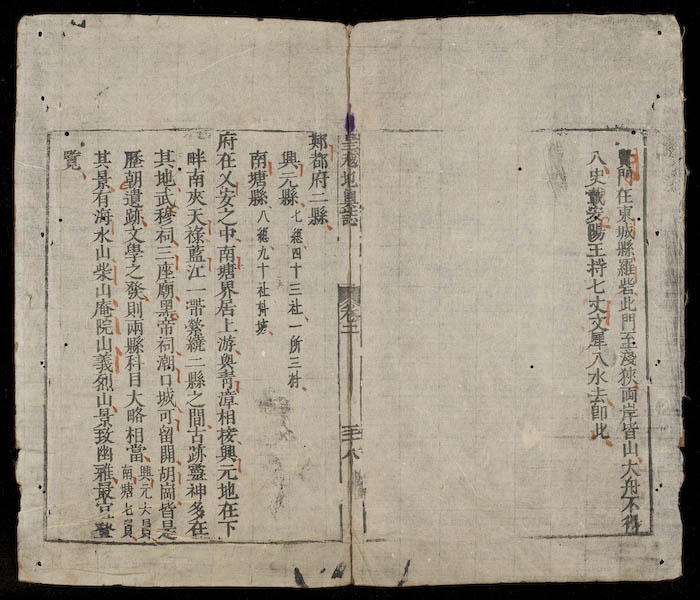 門在東城縣羅砦此門至淺狹兩岸皆山大舟不得
入史載安陽王持七丈文犀入水去卽此
皇越地輿誌
卷二
三八
鄚都府二縣
興元縣七總四十三社一所三村
南塘縣八總九十社村坊
府在乂安之中南塘界居上游與靑漳相接興元地在下
畔南夾天祿藍江一帶縈繞二縣之間古跡靈神多在
其地武穆祠三座廟黑帝祠潮口城可留開胡崗皆是
歷朝遺跡文學之發則兩縣科目大略相當興元六員南塘七員
其景有海水山柴山庵院山義烈山景致幽雅最宜登
覽